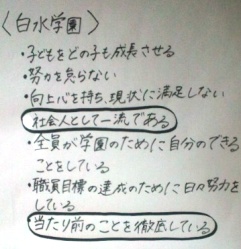 〈白水学園〉
・子どもをどの子も成長させる
・努力を怠らない
・向上心を持ち、現状に満足しない
社会人として一流である
・全員が学園のために自分のできる
ことをしている
・職員目標の達成のために日々努力を
している
当たり前のことを徹底している